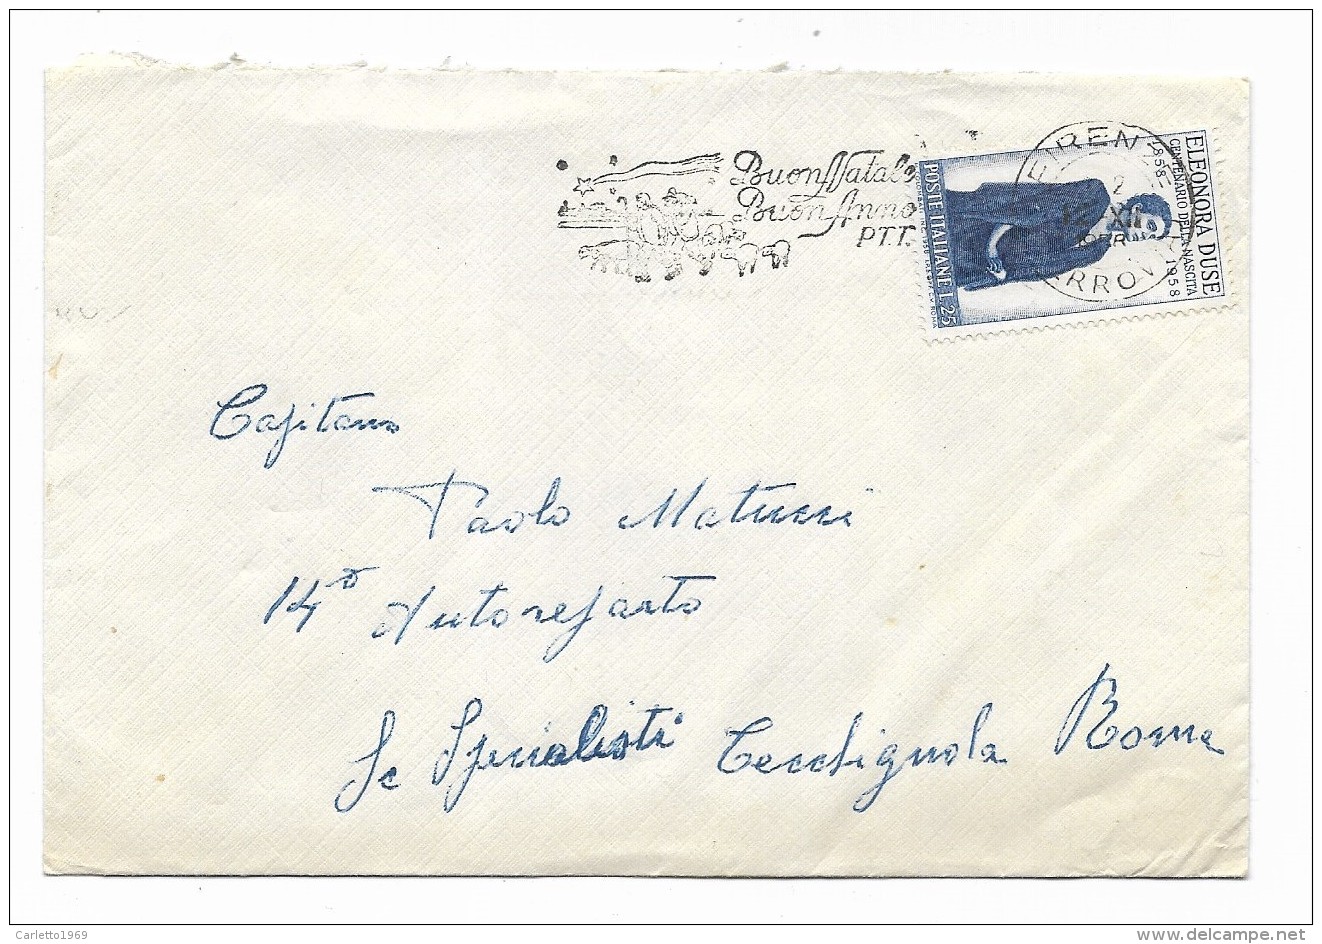 Buon Natale
Buon Anno
PT.T.
FIRENZE
12 XII
FERROVIA
ELEONORA DUSE
CENTENARIO DELLA NASCITA
1858
1958
POSTE ITALIANE L. 25
Capitano
Paolo Matucci
14° Autoreparto
Sc Specialisti Cecchignola Roma
Carletto1969
delcampe.net